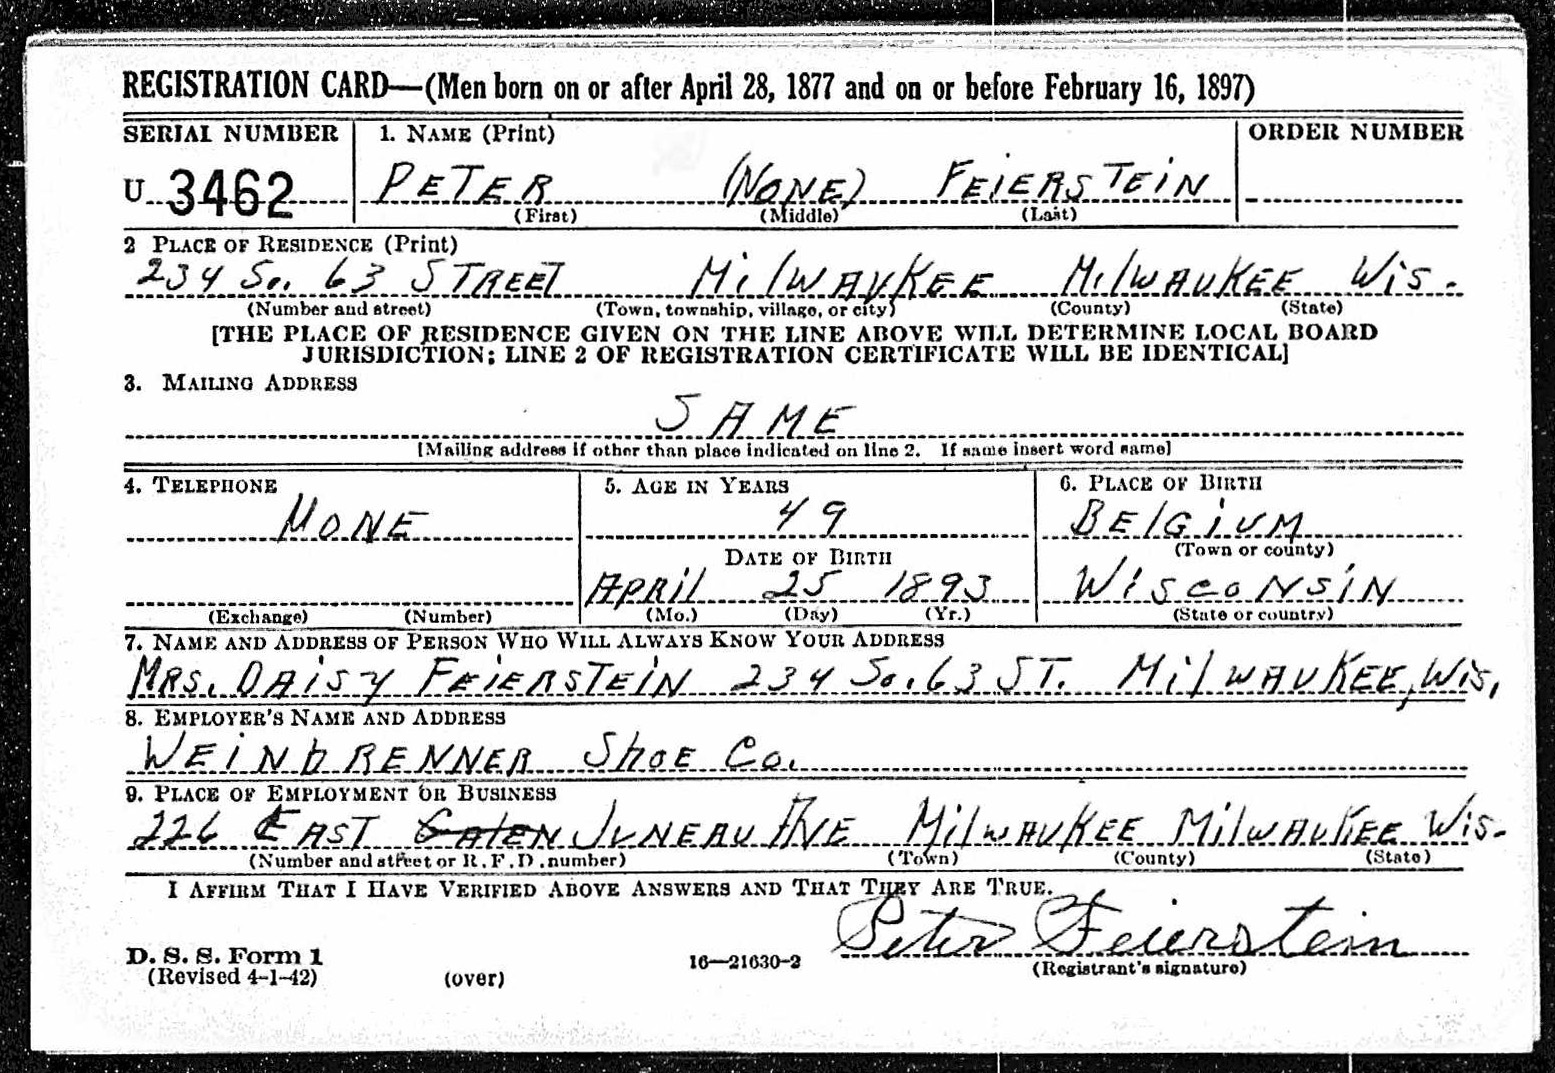 REGISTRATION CARD—(Men born on or after April 28, 1877 and on or before February 16, 1897)
SERIAL NUMBER 1. NAME (Print) ORDER NUMBER
U 3462 PETER (NONE) FEIERSTEIN
(First) (Middle) (Last)
2 PLACE OF RESIDENCE (Print)
234 So. 63 STREET MilWAUKEE MilWAUKEE Wis.
(Number and street) (Town, township, village, or city) (County) (State)
[THE PLACE OF RESIDENCE GIVEN ON THE LINE ABOVE WILL DETERMINE LOCAL BOARD
JURISDICTION; LINE 2 OF REGISTRATION CERTIFICATE WILL BE IDENTICAL]
3. MAILING ADDRESS
SAME
[Mailing address if other than place indicated on line 2. If same insert word same]
4. TELEPHONE 5. AGE IN YEARS 6. PLACE OF BIRTH
NONE 49 BElGiUM
DATE OF BIRTH (Town or county)
APRil 25 1893 WisCoNSiN
(Exchange) (Number) (Mo.) (Day) (Yr.) (State or country)
7. NAME AND ADDRESS OF PERSON WHO WILL ALWAYS KNOW YOUR ADDRESS
MRS. DAiSY FEiERSTEiN 234 So. 63 ST. MilWAUKEE, Wis.
8. EMPLOYER'S NAME AND ADDRESS
WEiNbRENNER ShoE Co.
9. PLACE OF EMPLOYMENT OR BUSINESS
226 EAST JUNEAU AVE MilWAUKEE MilWAUKEE Wis.
(Number and street or R. F. D. number) (Town) (County) (State)
I AFFIRM THAT I HAVE VERIFIED ABOVE ANSWERS AND THAT THEY ARE TRUE.
Peter Feierstein
D. S. S. Form 1 16—21630-2 (Registrant's signature)
(Revised 4-1-42) (over)